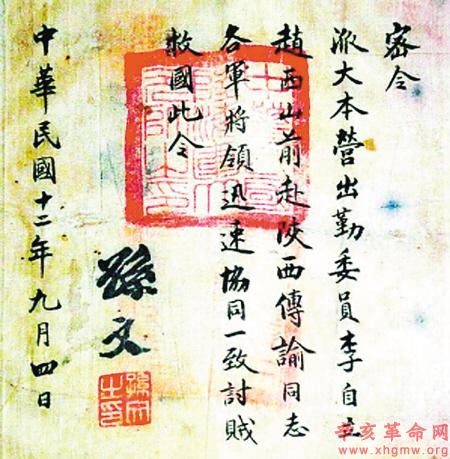 密令
派大本營出勤委員李自立
趙西山前赴陝西傳諭同志
各軍將領迅速協同一致討賊
救國此令
孫文
孫文之印
中華民國十二年九月四日
辛亥革命网
www.xhgmw.org